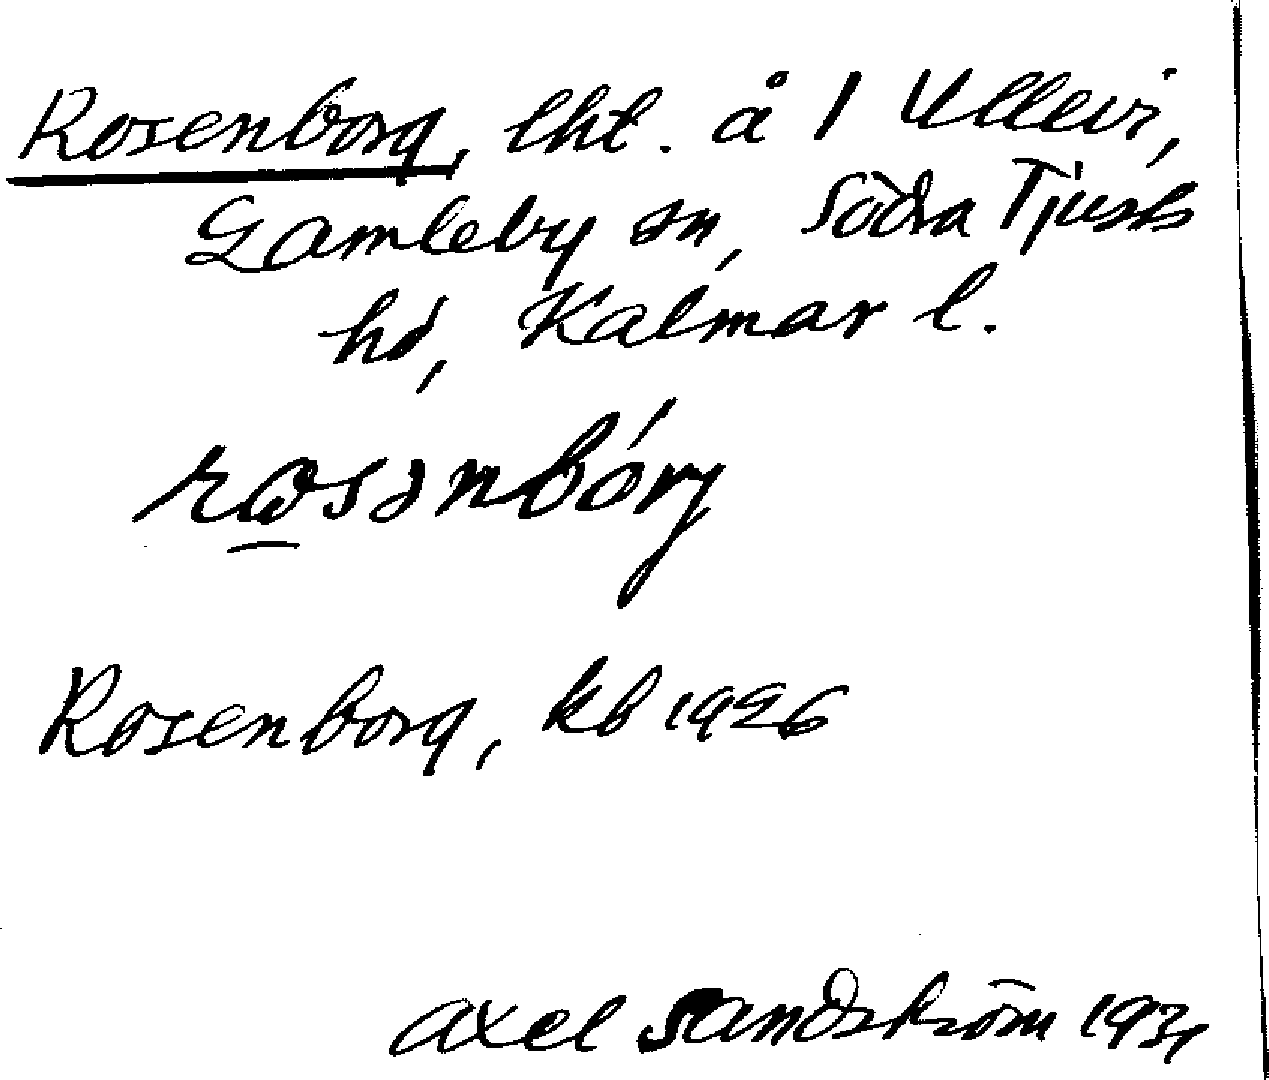 Rosenborg, lht. å 1 Ullevi,
Gamleby sn, Södra Tjusts
hd, Kalmar l.
rosənbórg
Rosenborg, kb 1926
Axel Sandström